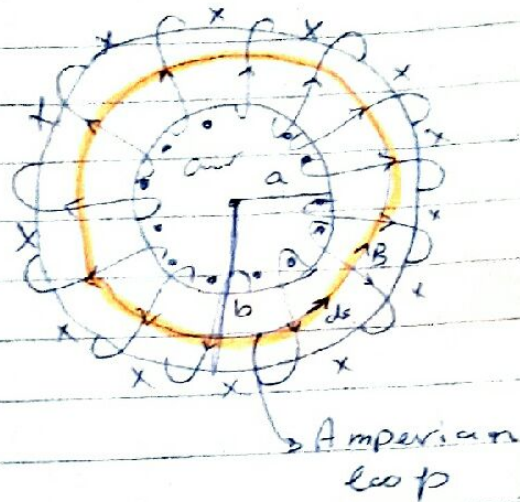 air
a
b
B
ds
Amperian
loop